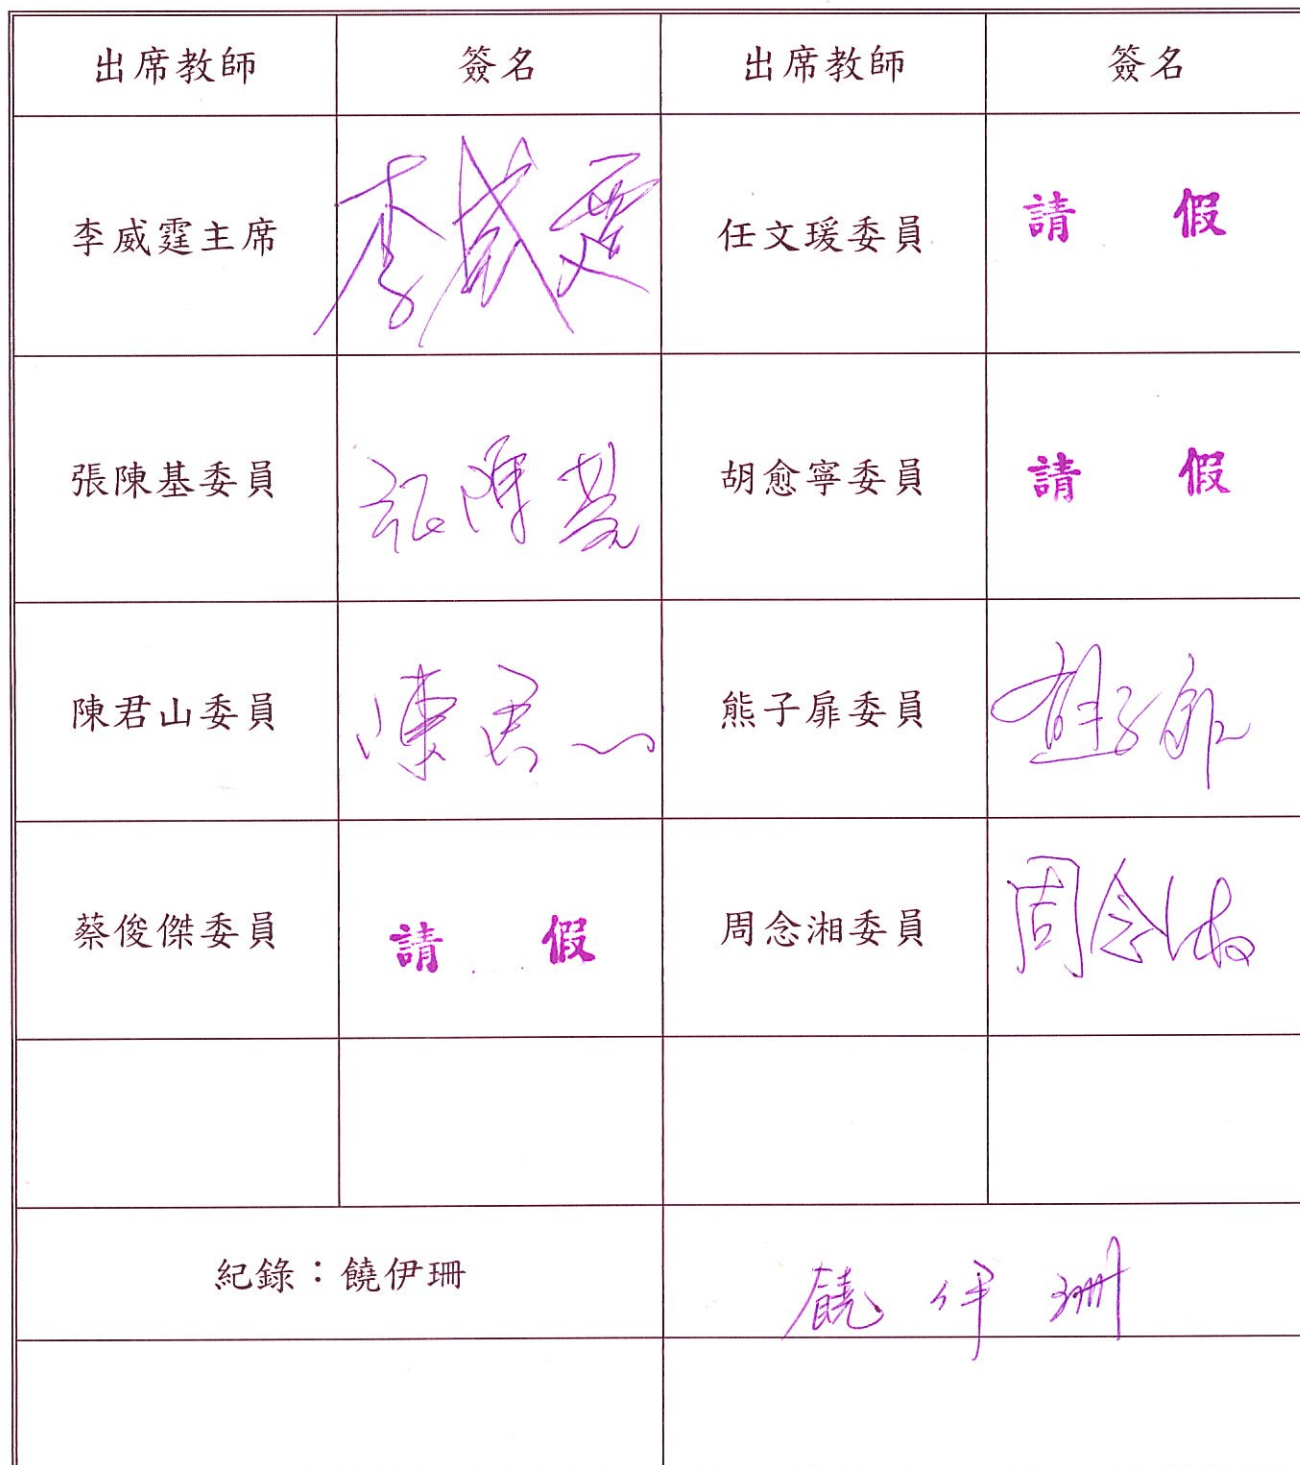 出席教師 簽名 出席教師 簽名
李威霆主席 李威霆 任文瑗委員 請 假
張陳基委員 張陳基 胡愈寧委員 請 假
陳君山委員 陳君山 熊子扉委員 熊子扉
蔡俊傑委員 請 假 周念湘委員 周念湘
紀錄：饒伊珊 饒伊珊